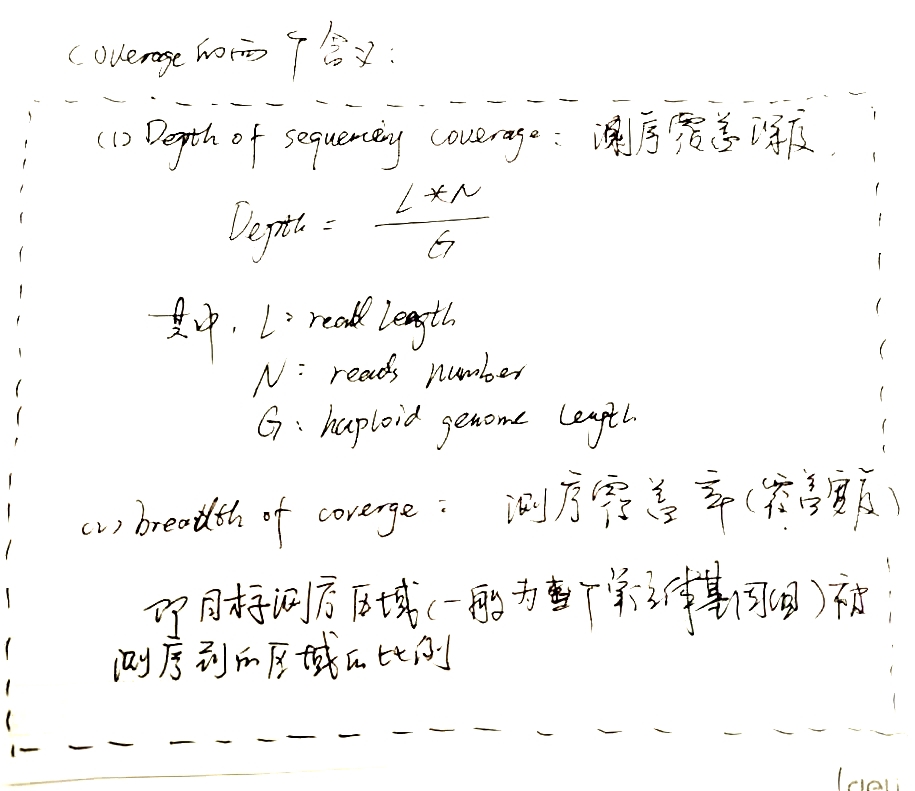 coverage的两个含义:
(1) Depth of sequencing coverage: 测序覆盖深度.
Depth = \frac{L*N}{G}
其中, L: read length
N: reads number
G: haploid genome length
(2) breadth of coverge: 测序覆盖率(覆盖宽度)
即目标测序区域(一般为整个单倍体基因组)被
测序到的区域的比例
deli